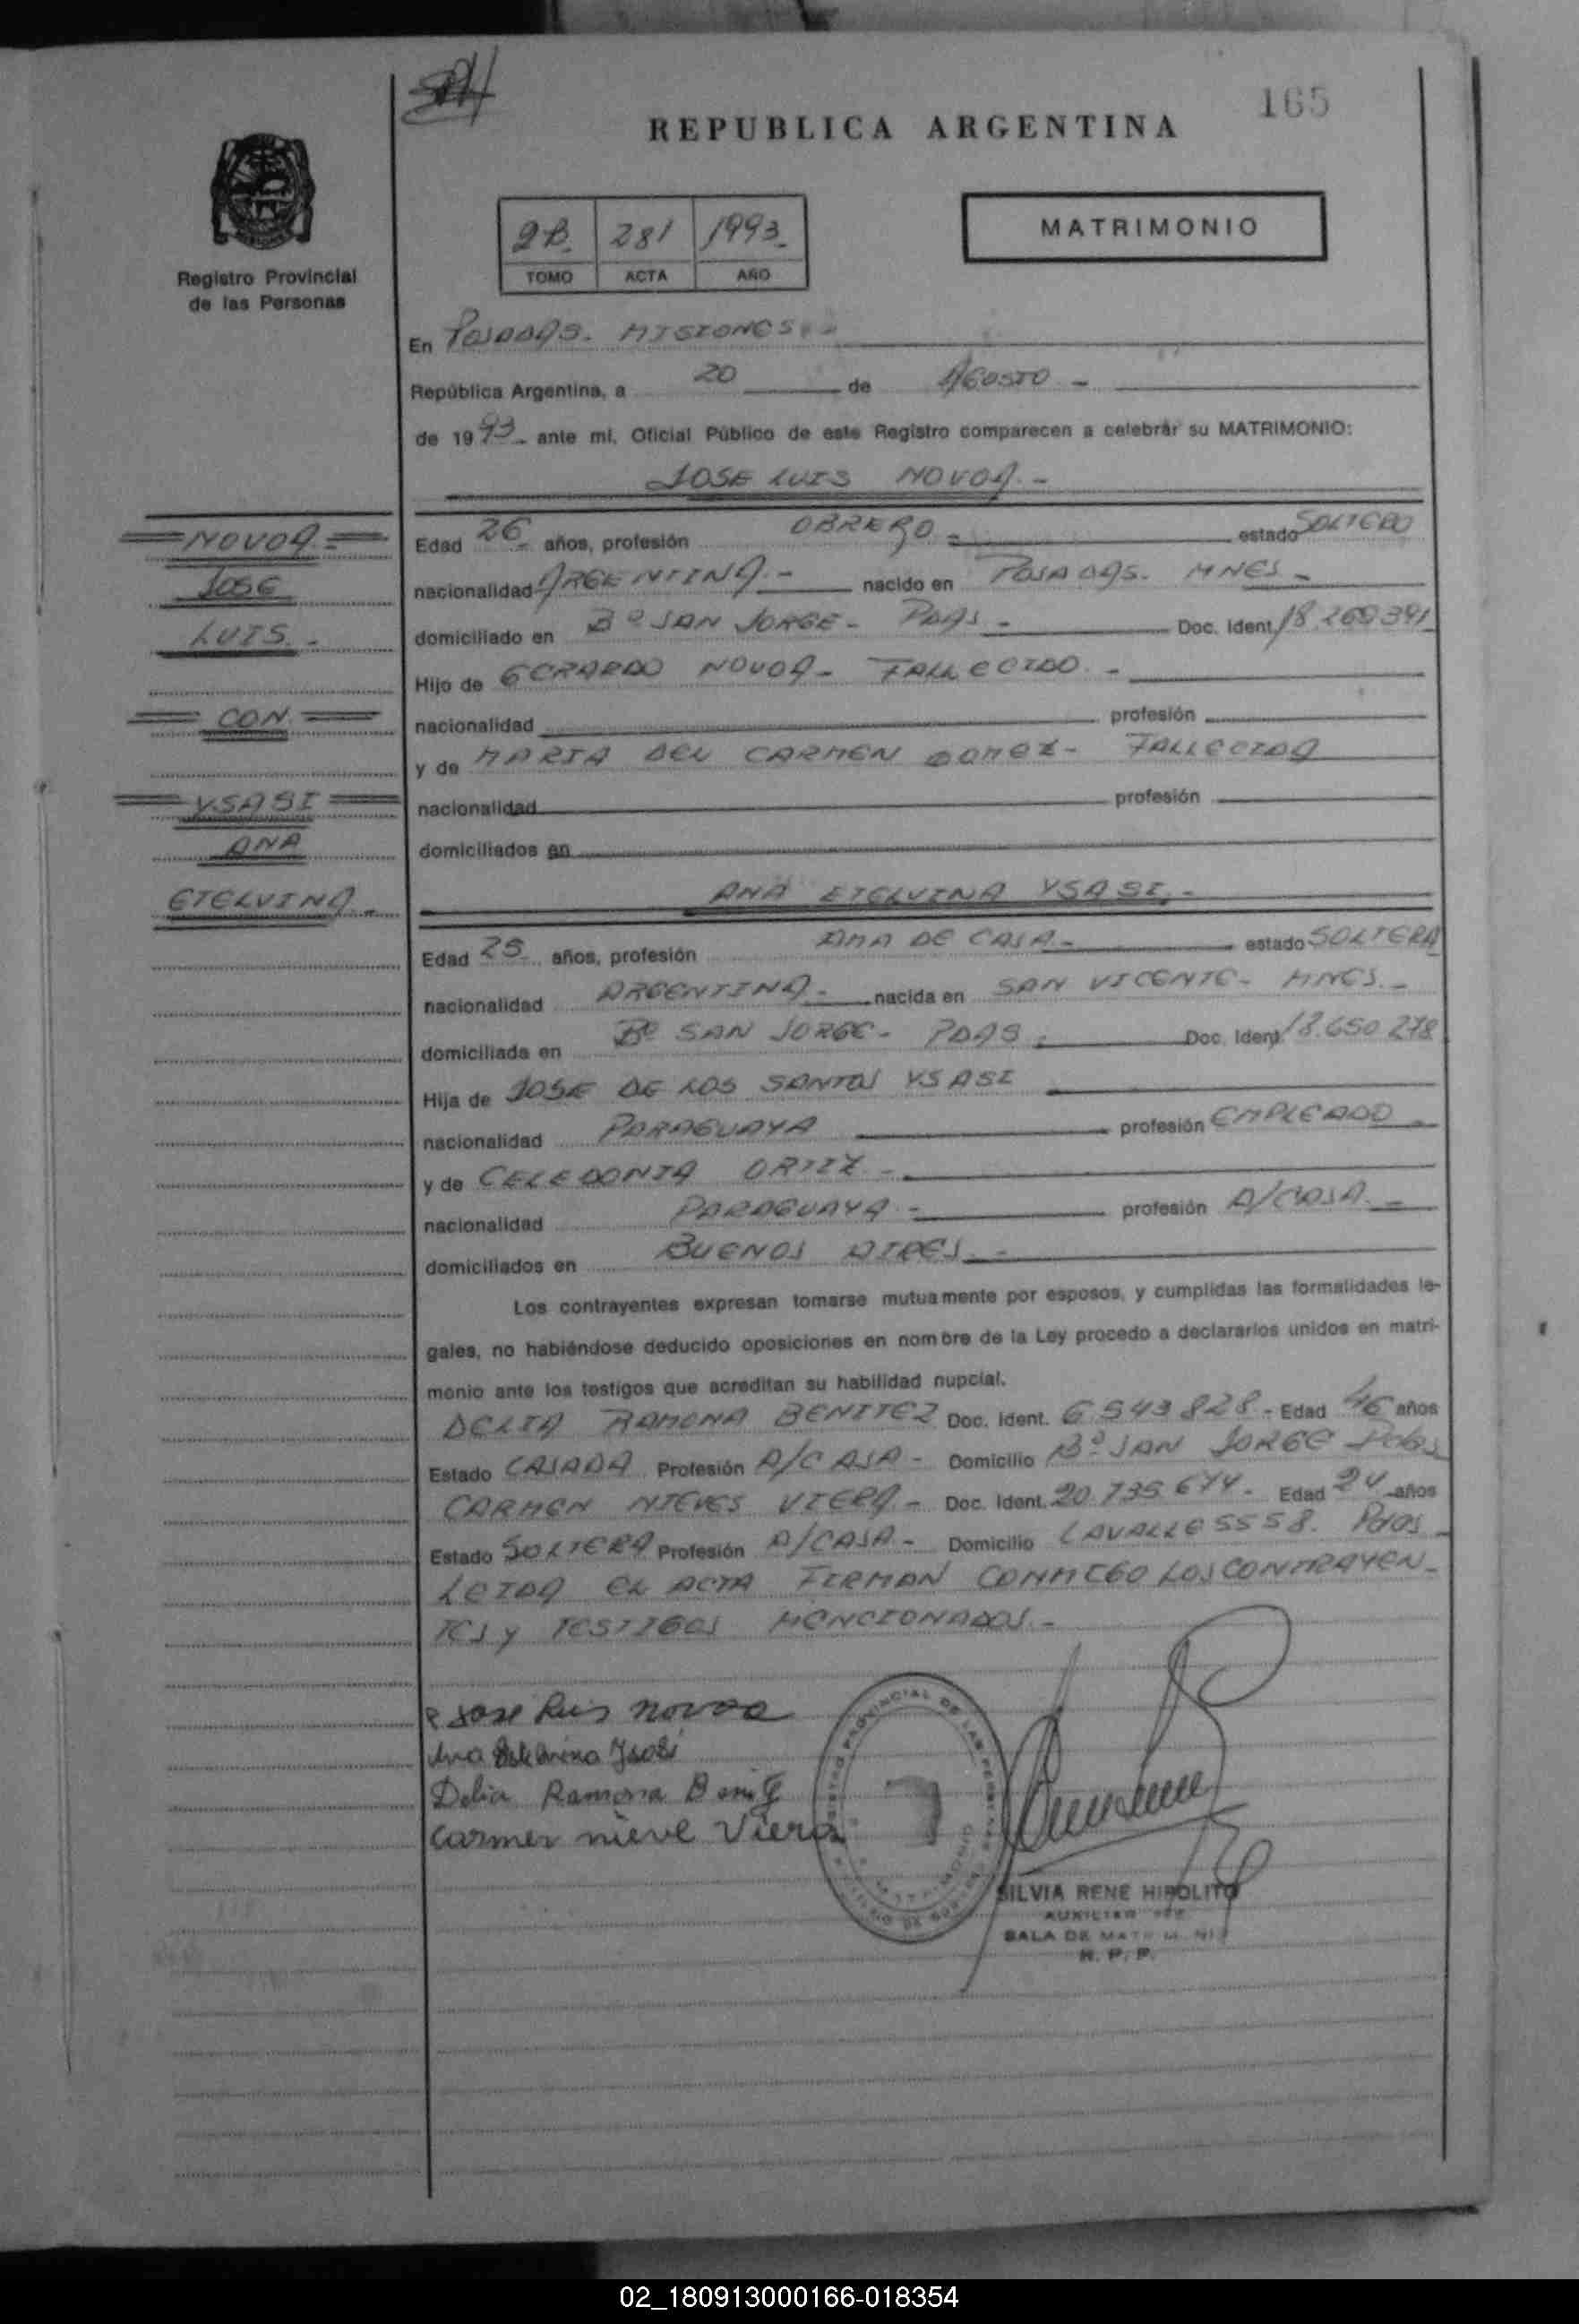 165
REPUBLICA ARGENTINA
2B. 281 1993.
TOMO ACTA AÑO
MATRIMONIO
Registro Provincial
de las Personas
En POSADAS. MISIONES. -
República Argentina, a 20 de AGOSTO -
de 1993 - ante mi, Oficial Público de este Registro comparecen a celebrar su MATRIMONIO:
JOSE LUIS NOVOA. -
NOVOA. =
JOSE
LUIS. -
CON.
YSASI
ANA
ETELVINA -
Edad 26 - años, profesión OBRERO - estado SOLTERO
nacionalidad ARGENTINA. - nacido en POSADAS. MNES -
domiciliado en Bº SAN JORGE - PDAS - Doc. Ident. 18.269391
Hijo de GERARDO NOVOA - FALLECIDO. -
nacionalidad profesión
y de MARIA DEL CARMEN GOMEZ - FALLECIDA
nacionalidad profesión
domiciliados en
ANA ETELVINA YSASI. -
Edad 25 años, profesión AMA DE CASA - estado SOLTERA
nacionalidad ARGENTINA - nacida en SAN VICENTE - MNES. -
domiciliada en Bº SAN JORGE - PDAS. Doc. Ident. 18.650.278
Hija de JOSE DE LOS SANTOS YSASI
nacionalidad PARAGUAYA profesión EMPLEADO -
y de CELEDONIA ORTIZ -
nacionalidad PARAGUAYA - profesión A/CASA. -
domiciliados en BUENOS AIRES. -
Los contrayentes expresan tomarse mutuamente por esposos, y cumplidas las formalidades le-
gales, no habiéndose deducido oposiciones en nombre de la Ley procedo a declararlos unidos en matri-
monio ante los testigos que acreditan su habilidad nupcial.
DELIA RAMONA BENITEZ Doc. Ident. 6.543.828 - Edad 46 años
Estado CASADA Profesión A/CASA - Domicilio Bº SAN JORGE Pdas
CARMEN NIEVES VIERA - Doc. Ident. 20.735.674 - Edad 24 años
Estado SOLTERA Profesión A/CASA - Domicilio LAVALLE 5558. Pdas
LEIDA EL ACTA FIRMAN CONMIGO LOS CONTRAYEN-
TES y TESTIGOS MENCIONADOS. -
Jose Luis novoa
Ana Etelvina Ysasi
Delia Ramona Benitez
Carmen nieve Viera
REGISTRO PROVINCIAL DE LAS PERSONAS
SILVIA RENE HIPOLITO
AUXILIAR
SALA DE MATRIMONIO
R. P. P.
02_180913000166-018354